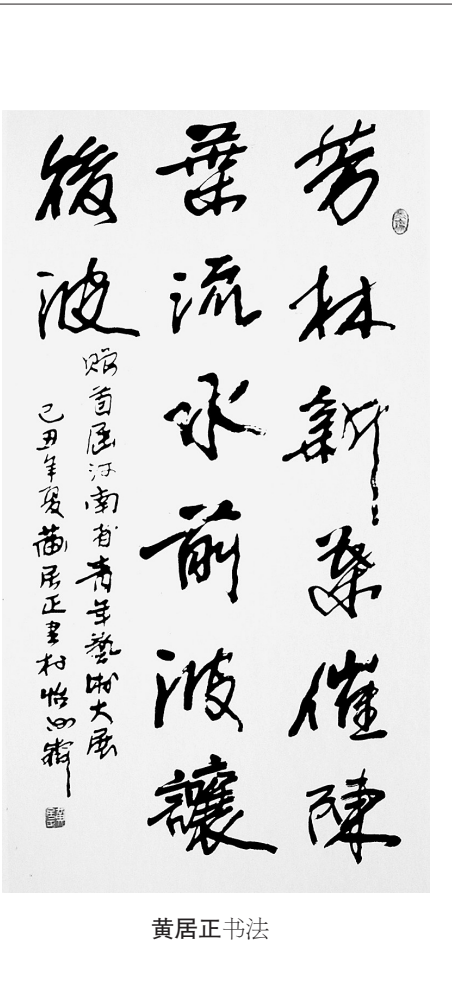 芳林新葉催陳
葉流水前波讓
後波
贈首屆河南省青年藝術大展
己丑年夏黃居正書於怡齋
黄居正书法